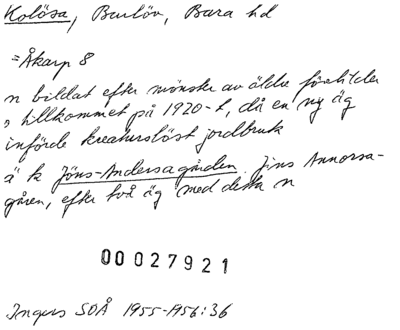 Kolösa, Burlöv, Bara hd
=Åkarp 8
n bildat efter mönster av äldre förebilder
o tillkommet på 1920-t, då en ny äg
införde kreaturslöst jordbruk
ä k Jöns-Andersagården, Jins Annorsa-
gåren, efter två äg med detta n
00027921
Ingers SOÅ 1955-1956:36